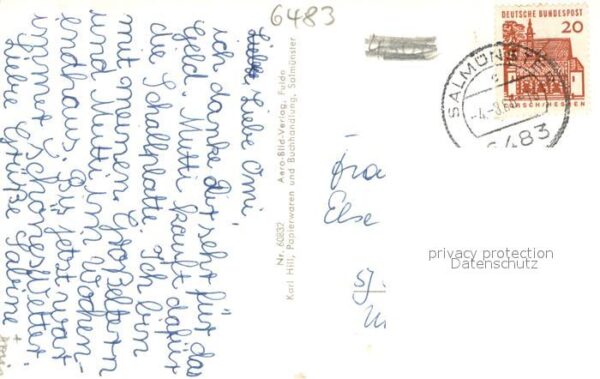 6483
DEUTSCHE BUNDESPOST
20
LORSCH/HESSEN
SALMÜNSTER
6483
Liebe Omi,
ich danke dir sehr für das
Geld. Mutti kauft dafür
die Schallplatte. Ich bin
mit meinen Großeltern
und Mutti im Wochen-
endhaus. Bis jetzt war
immer schönes Wetter.
Liebe Grüße Sabine
Aero-Bild-Verlag, Fulda
Nr. 60832
Karl Hill, Papierwaren und Buchhandlung, Salmünster
Fra
Else
privacy protection
Datenschutz